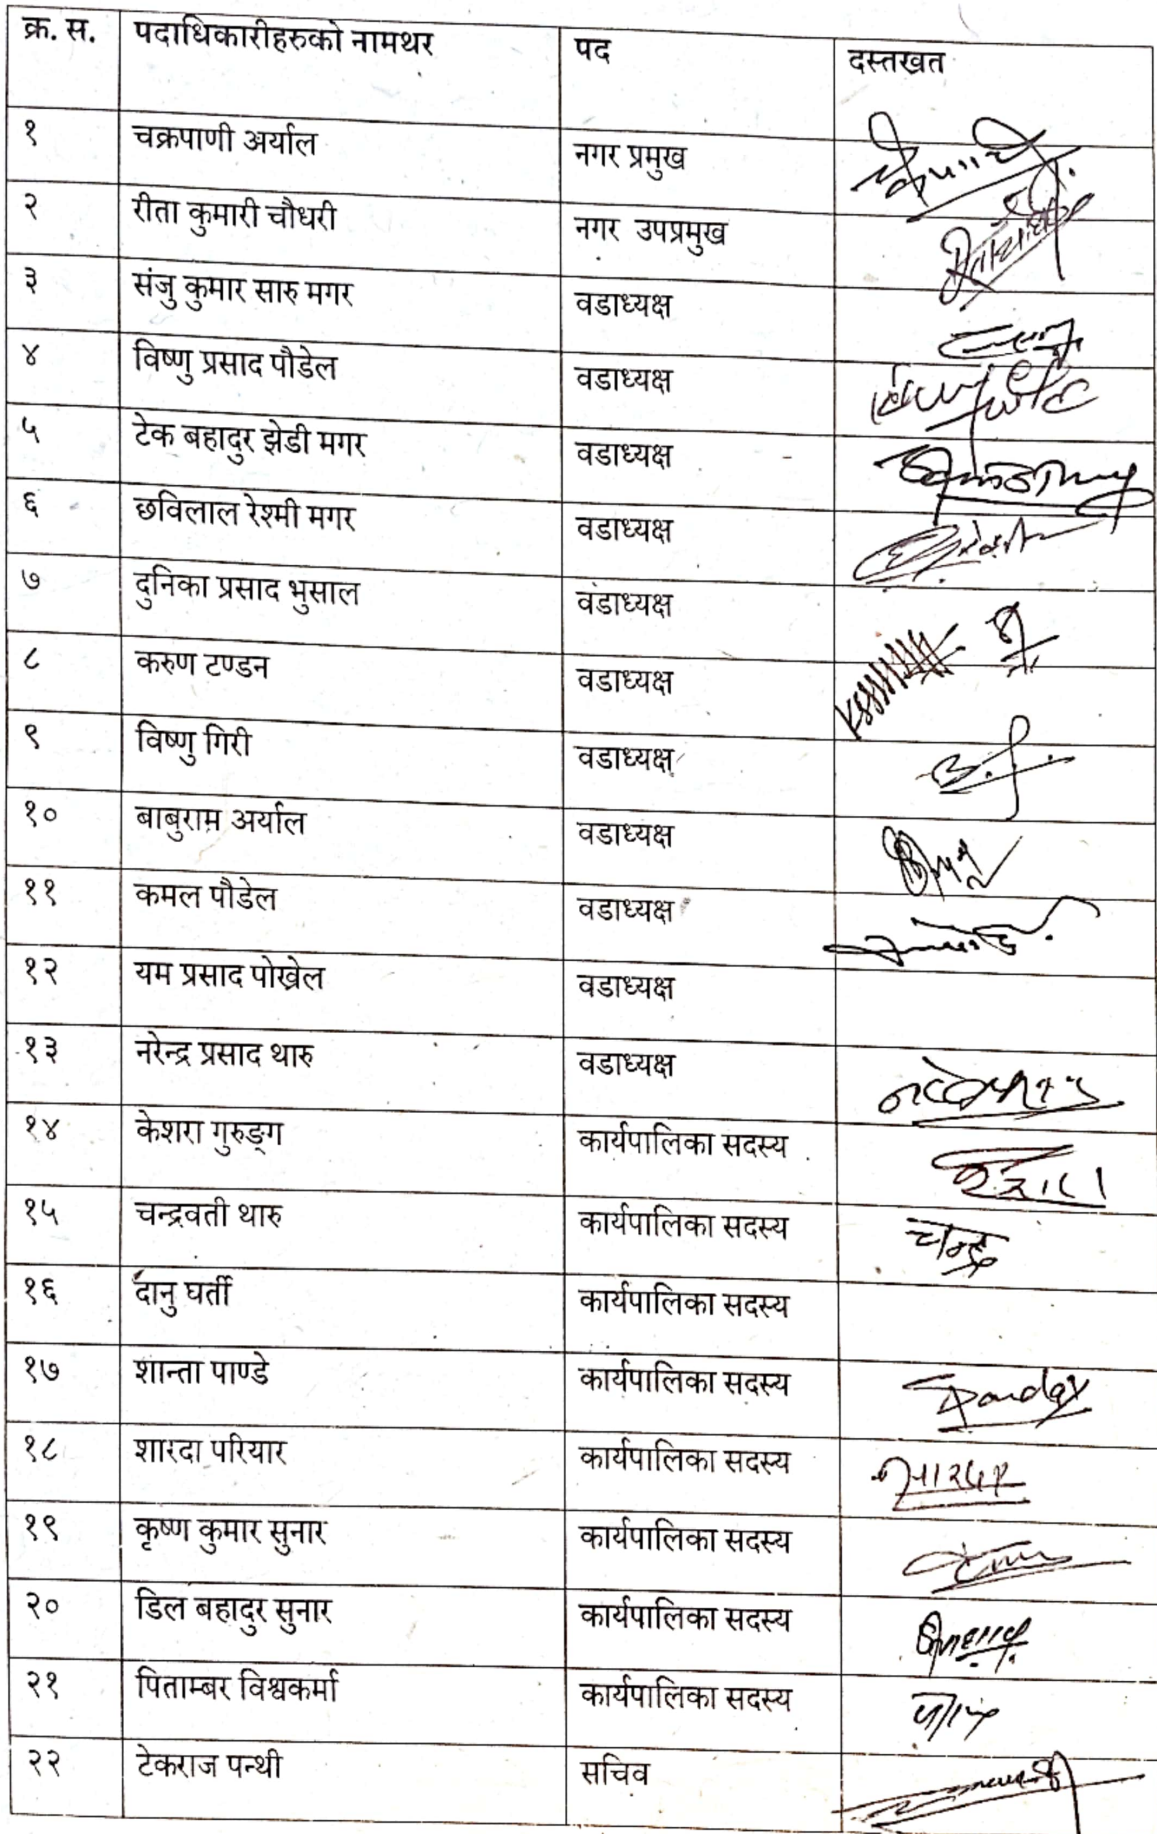 क्र. स. पदाधिकारीहरुको नामथर पद दस्तखत
१ चक्रपाणी अर्याल नगर प्रमुख
२ रीता कुमारी चौधरी नगर उपप्रमुख
३ संजु कुमार सारु मगर वडाध्यक्ष
४ विष्णु प्रसाद पौडेल वडाध्यक्ष
५ टेक बहादुर झेडी मगर वडाध्यक्ष
६ छविलाल रेश्मी मगर वडाध्यक्ष
७ दुनिका प्रसाद भुसाल वडाध्यक्ष
८ करुण टण्डन वडाध्यक्ष
९ विष्णु गिरी वडाध्यक्ष
१० बाबुराम अर्याल वडाध्यक्ष
११ कमल पौडेल वडाध्यक्ष
१२ यम प्रसाद पोख्रेल वडाध्यक्ष
१३ नरेन्द्र प्रसाद थारु वडाध्यक्ष
१४ केशरा गुरुङ्ग कार्यपालिका सदस्य
१५ चन्द्रवती थारु कार्यपालिका सदस्य चन्द्र
१६ दानु घर्ती कार्यपालिका सदस्य
१७ शान्ता पाण्डे कार्यपालिका सदस्य Panday
१८ शारदा परियार कार्यपालिका सदस्य
१९ कृष्ण कुमार सुनार कार्यपालिका सदस्य
२० डिल बहादुर सुनार कार्यपालिका सदस्य
२१ पिताम्बर विश्वकर्मा कार्यपालिका सदस्य
२२ टेकराज पन्थी सचिव